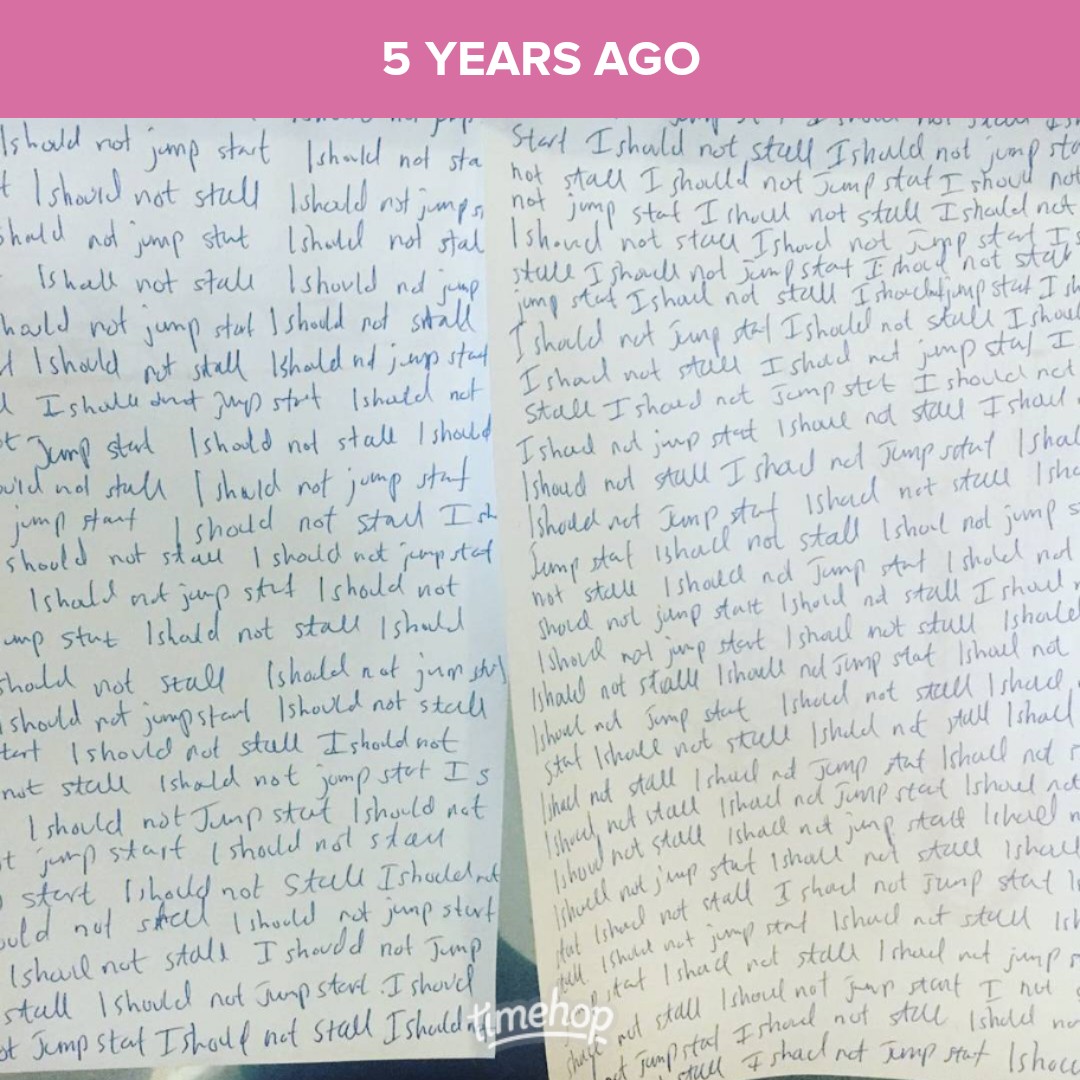 5 YEARS AGO
I should not jump start I should not sta
I should not stall I should not jump s
should not jump start I should not stal
I shall not stall I should not jump
hould not jump stat I should not stall
I should not stall I should not jump start
I should not jump start I should not
Jump start I should not stall I should
ould not stall I should not jump start
jump start I should not stall I sh
should not stall I should not jump stat
I should not jump start I should not
ump start I should not stall I should
should not stall I should not jump
should not jump start I should not stall
tart I should not stall I should not
not stall I should not jump start I s
I should not Jump start I should not
t jump start I should not stall
start I should not Stall I should not
ould not stall I should not jump start
I shall not stall I should not Jump
stall I should not jump start I should
ot Jump stat I should not stall I should
Start I should not stall I should not jump sta
not stall I should not jump stat I should not
not jump stat I should not stall I should not
I should not stall I should not jump start I s
stall I should not jump stat I should not stall
jump stat I should not stall I should jump stat I sh
I should not jump stat I should not stall I shoul
I should not stall I should not jump stat I
Stall I should not jump stat I should not
I should not jump start I should not stall I shoul
I should not stall I should not Jump start I shoul
I should not Jump stat I should not stall I sho
Jump stat I should not stall I should not jump s
not stall I should not Jump stat I should not
should not jump start I should not stall I should
I should not jump start I should not stall I should
I should not stall I should not Jump stat I should not
I should not Jump start I should not stall I should
stat I should not stall I should not stall I shall
I shall not stall I should not Jump stat I should not
I should not stall I should not Jump start I should not
I should not stall I should not jump start I should
I should not jump stat I shall not stall I should
stat I should not stall I should not jump stat
stall I should not jump start I should not stall I sh
stat I should not stall I should not jump
not stall I should not jump start I not
not jump stat I should not stall I should
stall I should not Jump stat I shou
timehop